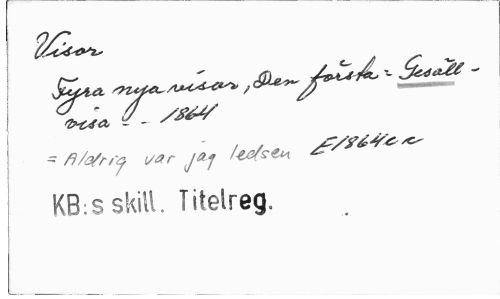 Visor
Fyra nya visor, Den första = Gesäll-
visa - - 1864
= Aldrig var jag ledsen E1864cc
KB:s skill. Titelreg.